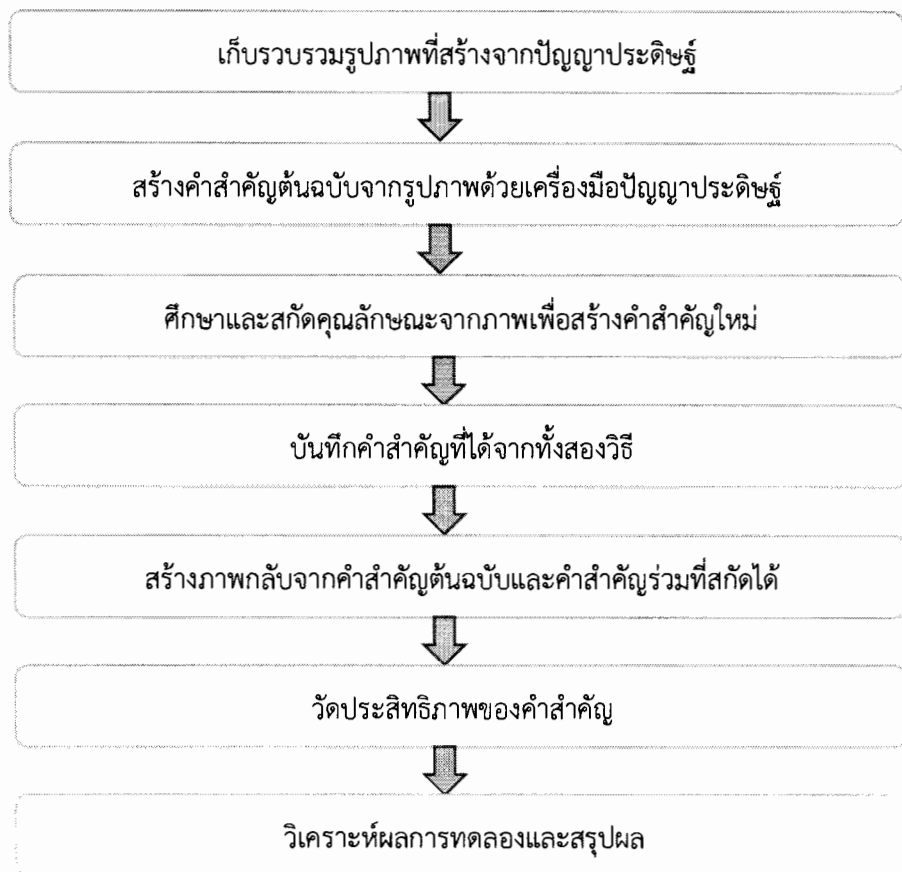 เก็บรวบรวมรูปภาพที่สร้างจากปัญญาประดิษฐ์
สร้างคำสำคัญต้นฉบับจากรูปภาพด้วยเครื่องมือปัญญาประดิษฐ์
ศึกษาและสกัดคุณลักษณะจากภาพเพื่อสร้างคำสำคัญใหม่
บันทึกคำสำคัญที่ได้จากทั้งสองวิธี
สร้างภาพกลับจากคำสำคัญต้นฉบับและคำสำคัญร่วมที่สกัดได้
วัดประสิทธิภาพของคำสำคัญ
วิเคราะห์ผลการทดลองและสรุปผล